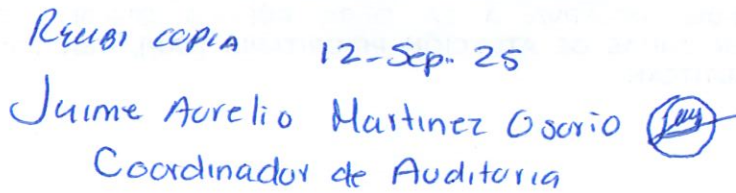 Recibi copia 12-Sep. 25
Jaime Aurelio Martinez Osorio
Coordinador de Auditoria